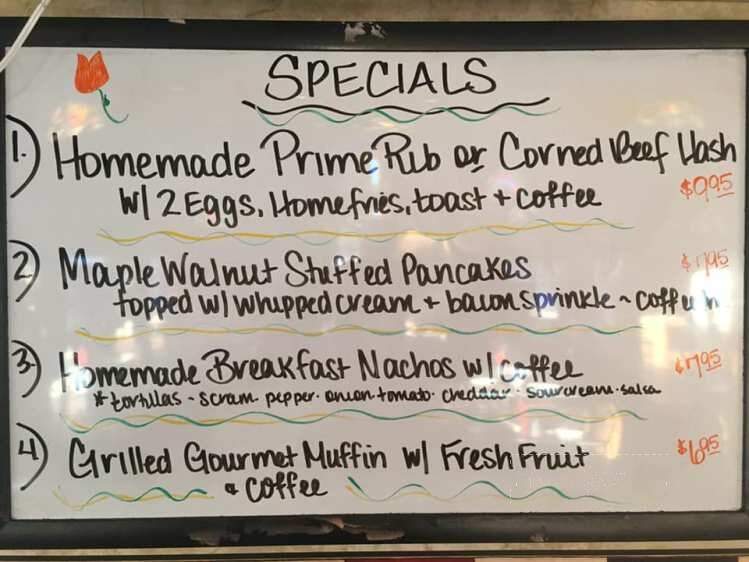 SPECIALS
1.) Homemade Prime Rib or Corned Beef Hash
w/ 2 Eggs, Homefries, toast + coffee $9.95
2) Maple Walnut Stuffed Pancakes
topped w/ whipped cream + bacon sprinkle ~
3.) Homemade Breakfast Nachos w/ coffee $7.95
* tortillas - scram. pepper. onion. tomato. cheddar. sour cream. salsa
4) Grilled Gourmet Muffin w/ Fresh Fruit $6.95
+ coffee